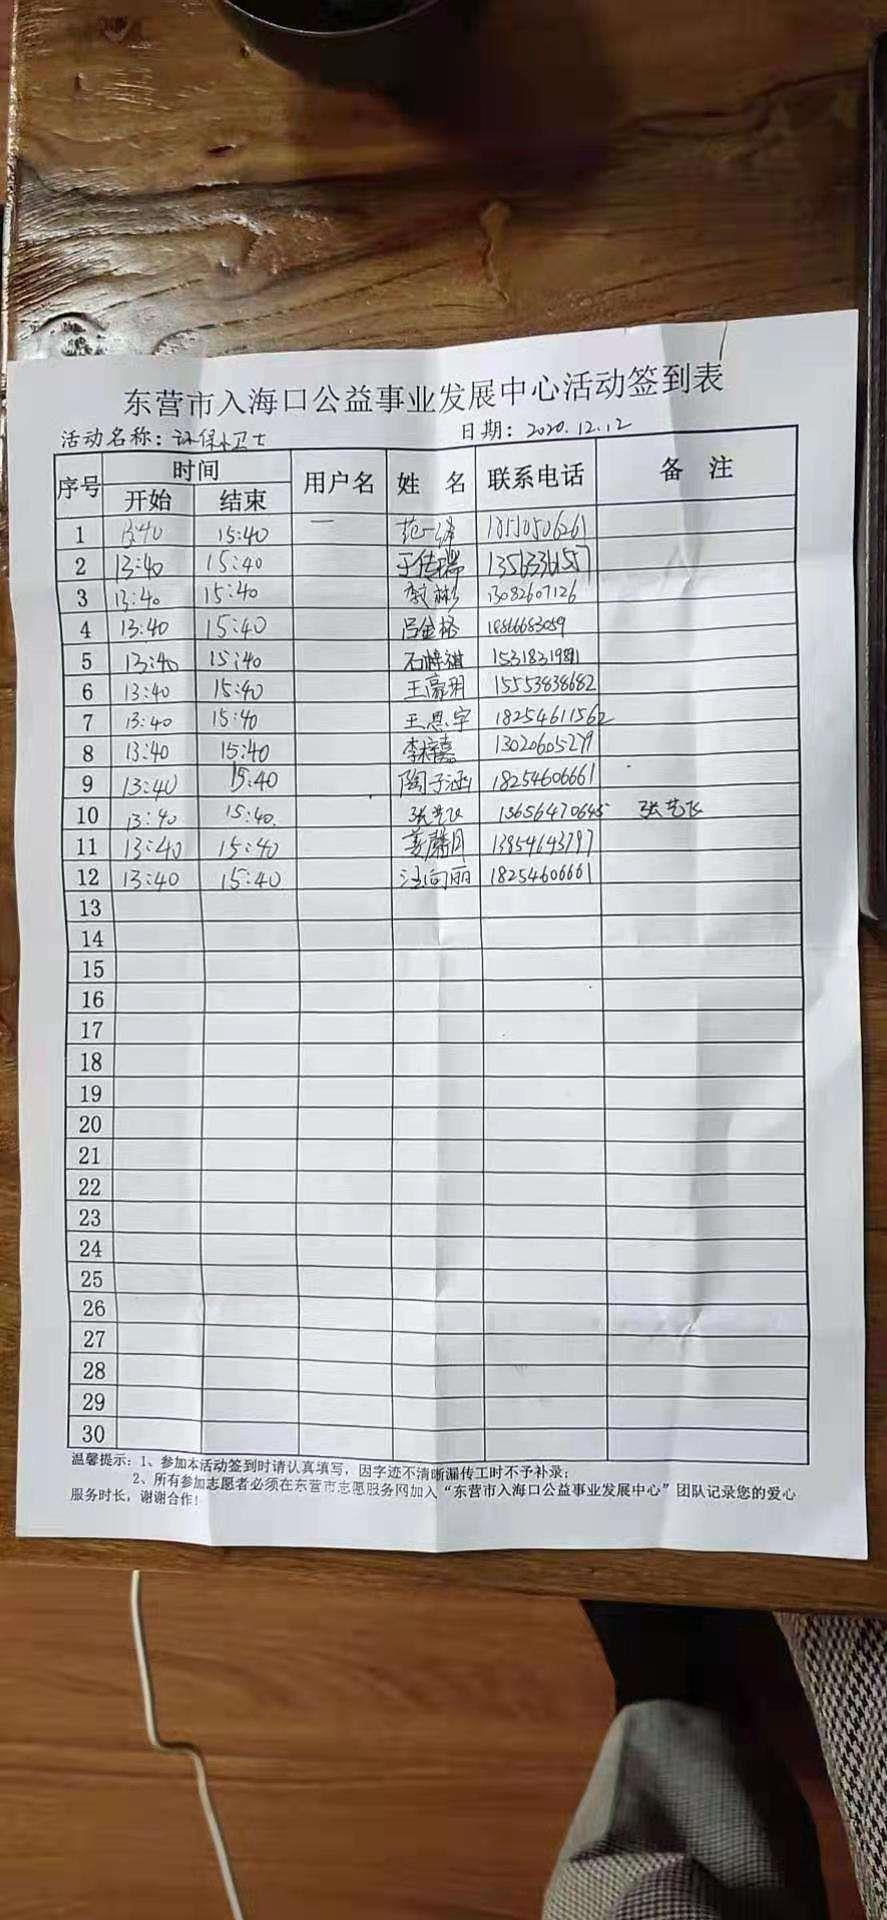 东营市入海口公益事业发展中心活动签到表
活动名称：环保小卫士 日期：2020.12.12
序号 时间 用户名 姓 名 联系电话 备 注
开始 结束
1 13:40 15:40 一
2 13:40 15:40 于传瑞
3 13:40 15:40 13082607126
4 13:40 15:40 吕金格 18866683059
5 13:40 15:40 石梓祺
6 13:40 15:40 王豪玥 15553838682
7 13:40 15:40 王思宇 18254611562
8 13:40 15:40 李梓嘉 13020605279
9 13:40 15:40 陶子涵 18254606661
10 13:40 15:40. 张艺飞 13656470645 张艺飞
11 13:40 15:40 姜馨月 13954643797
12 13:40 15:40 汪向丽 18254606661
13
14
15
16
17
18
19
20
21
22
23
24
25
26
27
28
29
30
温馨提示：1、参加本活动签到时请认真填写，因字迹不清晰漏传工时不予补录；
2、所有参加志愿者必须在东营市志愿服务网加入“东营市入海口公益事业发展中心”团队记录您的爱心
服务时长，谢谢合作！